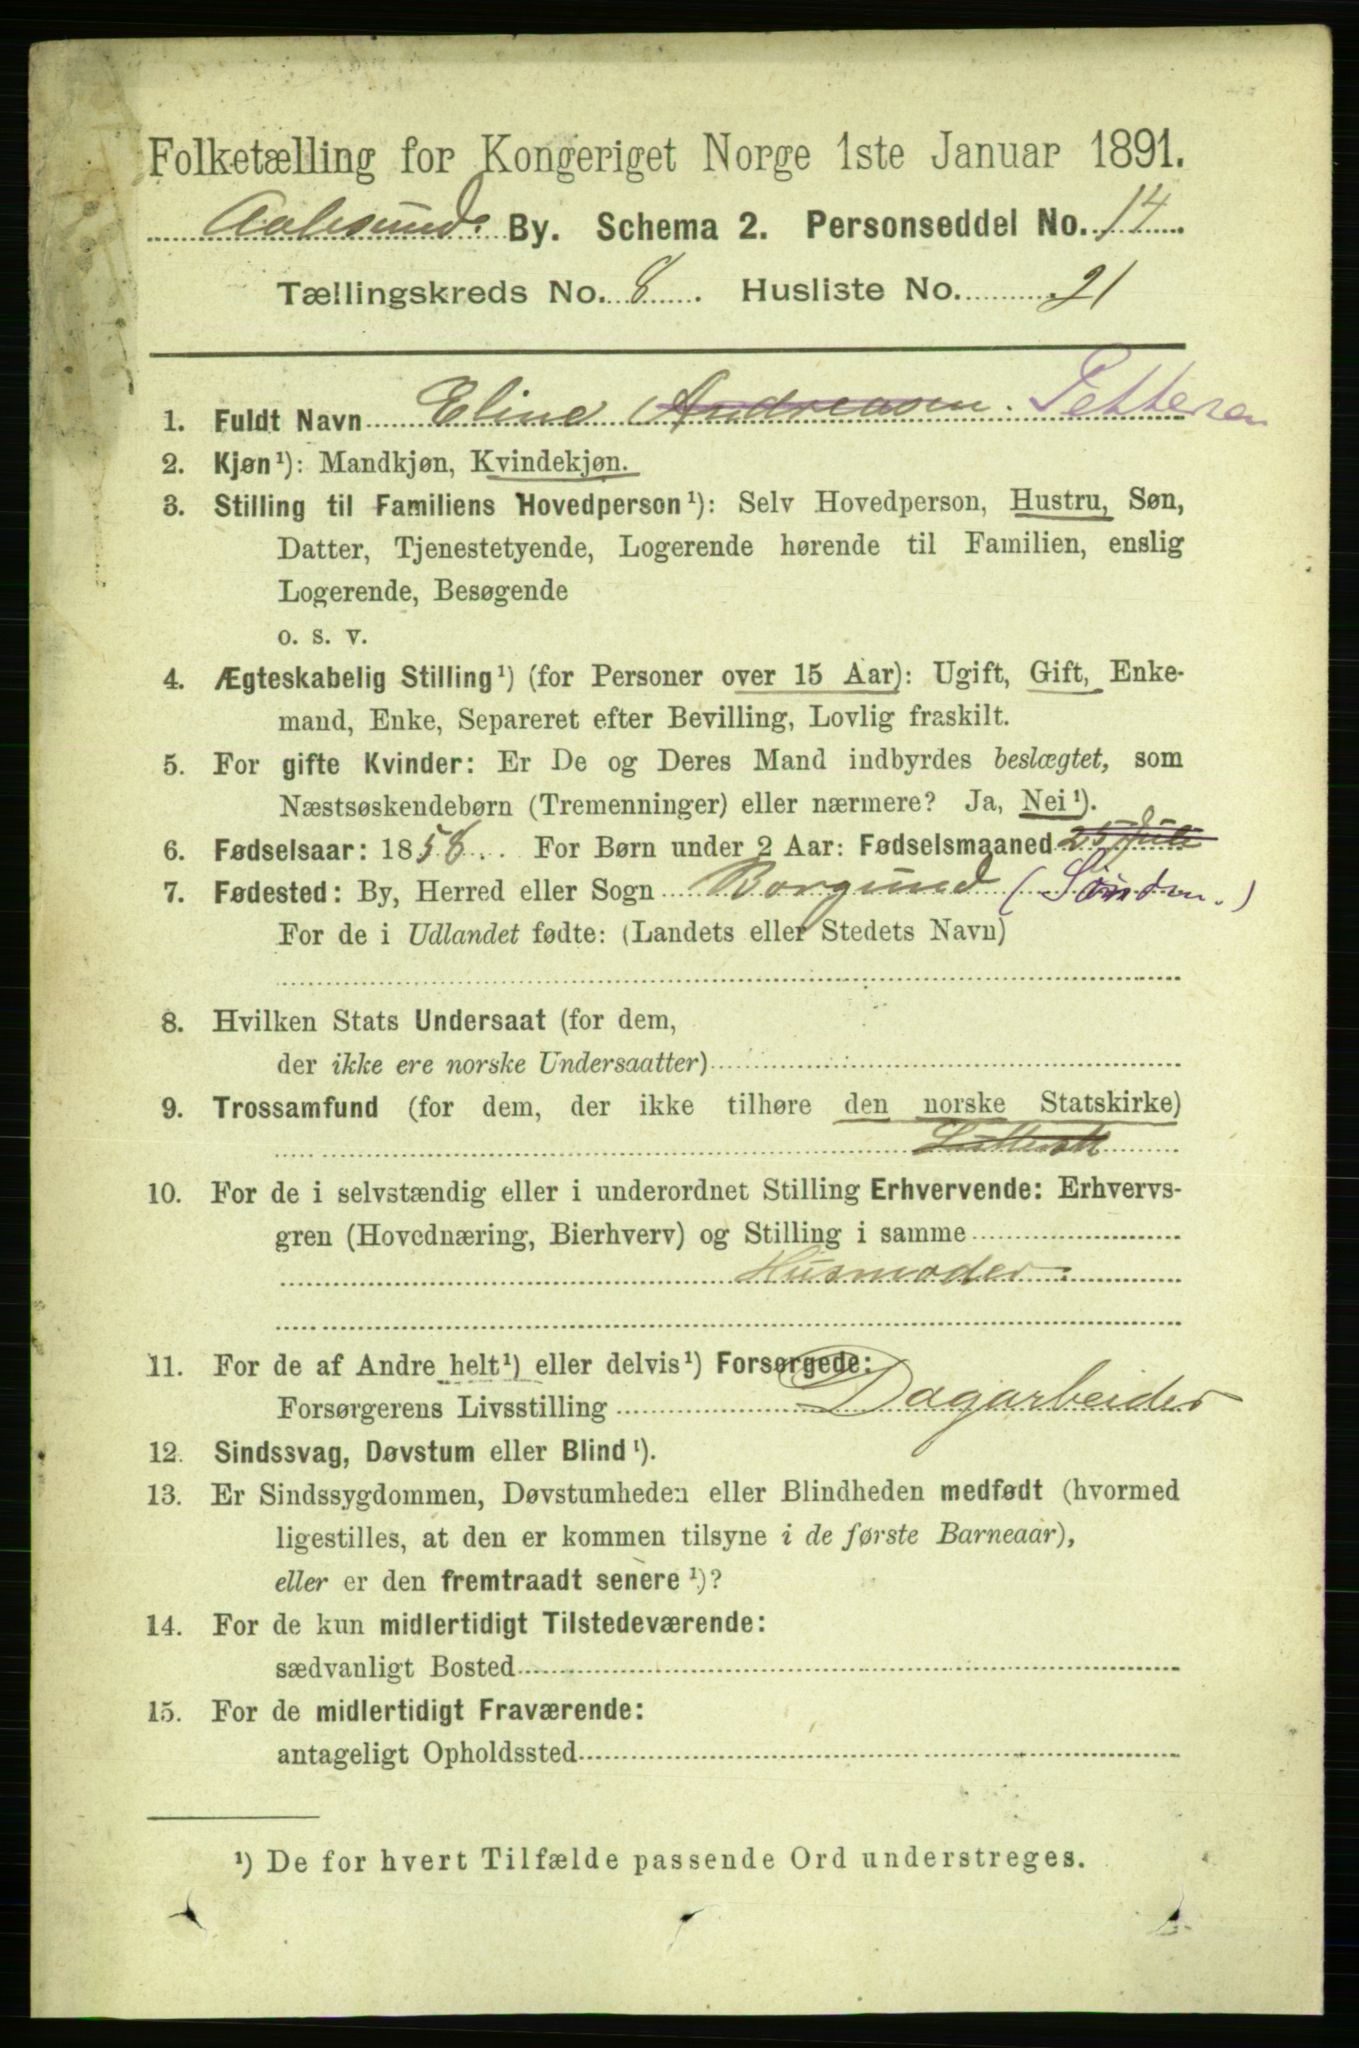 Folketælling for Kongeriget Norge 1ste Januar 1891.
Aalesunds By. Schema 2. Personseddel No. 14
Tællingskreds No. 8. Husliste No. 21
1. Fuldt Navn Eline Andreasen. Pettersen
2. Kjøn¹): Mandkjøn, Kvindekjøn.
3. Stilling til Familiens Hovedperson¹): Selv Hovedperson, Hustru, Søn,
Datter, Tjenestetyende, Logerende hørende til Familien, enslig
Logerende, Besøgende
o. s. v.
4. Ægteskabelig Stilling¹) (for Personer over 15 Aar): Ugift, Gift, Enke-
mand, Enke, Separeret efter Bevilling, Lovlig fraskilt.
5. For gifte Kvinder: Er De og Deres Mand indbyrdes beslægtet, som
Næstsøskendebørn (Tremenninger) eller nærmere? Ja, Nei¹).
6. Fødselsaar: 1858. For Børn under 2 Aar: Fødselsmaaned 25 Juli
7. Fødested: By, Herred eller Sogn Borgund (Söndm.)
For de i Udlandet fødte: (Landets eller Stedets Navn)
8. Hvilken Stats Undersaat (for dem,
der ikke ere norske Undersaatter)
9. Trossamfund (for dem, der ikke tilhøre den norske Statskirke)
10. For de i selvstændig eller i underordnet Stilling Erhvervende: Erhvervs-
gren (Hovednæring, Bierhverv) og Stilling i samme
Husmoder.
11. For de af Andre helt¹) eller delvis¹) Forsørgede:
Forsørgerens Livsstilling Dagarbeider
12. Sindssvag, Døvstum eller Blind¹).
13. Er Sindssygdommen, Døvstumheden eller Blindheden medfødt (hvormed
ligestilles, at den er kommen tilsyne i de første Barneaar),
eller er den fremtraadt senere¹)?
14. For de kun midlertidigt Tilstedeværende:
sædvanligt Bosted
15. For de midlertidigt Fraværende:
antageligt Opholdssted
¹) De for hvert Tilfælde passende Ord understreges.